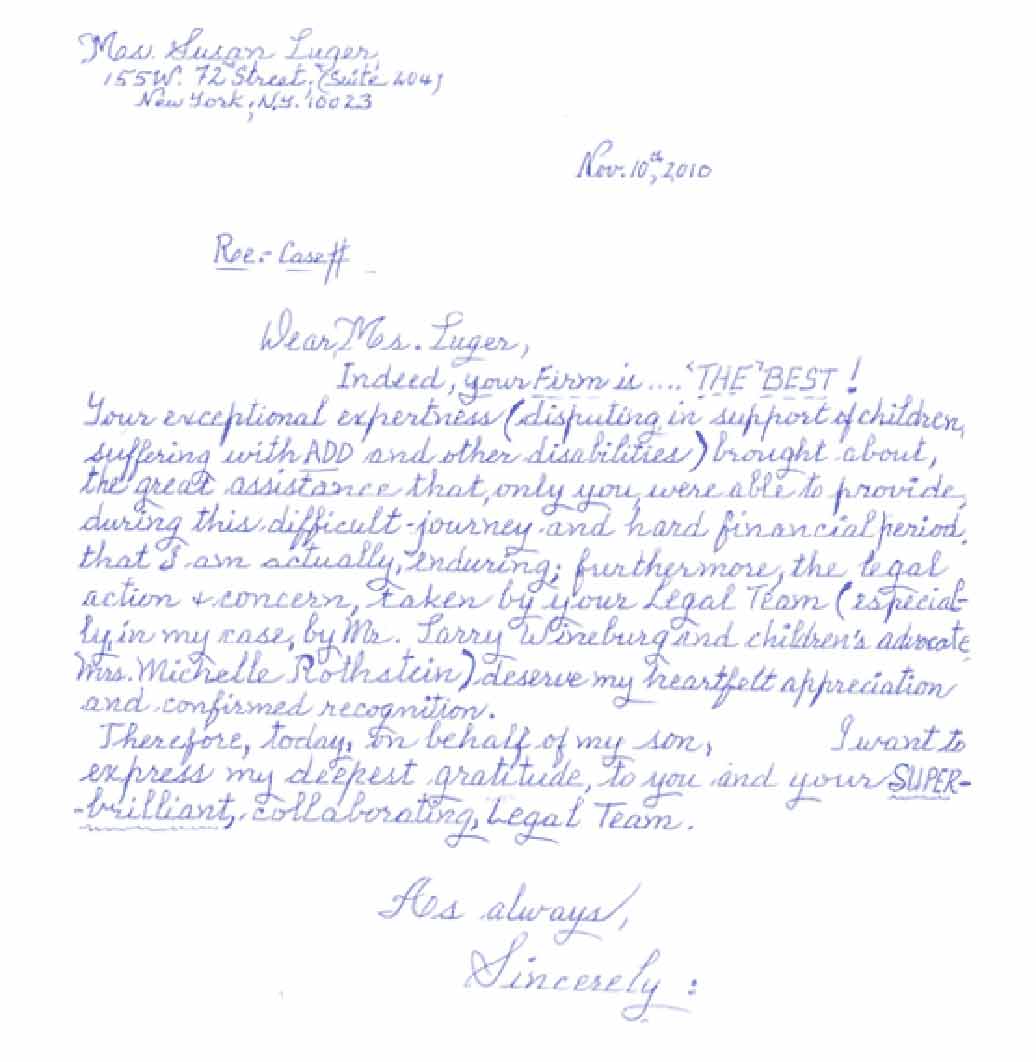 Mrs. Susan Luger,
155 W. 72nd Street, (Suite 204)
New York, N.Y. 10023
Nov. 10th, 2010
Re:- Case#
Dear, Ms. Luger,
Indeed, your Firm is .... "THE" BEST!
Your exceptional expertness (disputing, in support of children,
suffering with ADD and other disabilities) brought about,
the great assistance that, only you, were able to provide,
during this difficult-journey and hard financial period,
that I am actually, enduring; furthermore, the legal
action & concern, taken by your Legal Team (especial-
ly, in my case, by Mr. Larry Wineburg and children's advocate,
Mrs. Michelle Rothstein) deserve my heartfelt appreciation
and confirmed recognition.
Therefore, today, on behalf of my son, I want to
express my deepest gratitude, to you and your SUPER-
-brilliant, collaborating, Legal Team.
As always,
Sincerely: